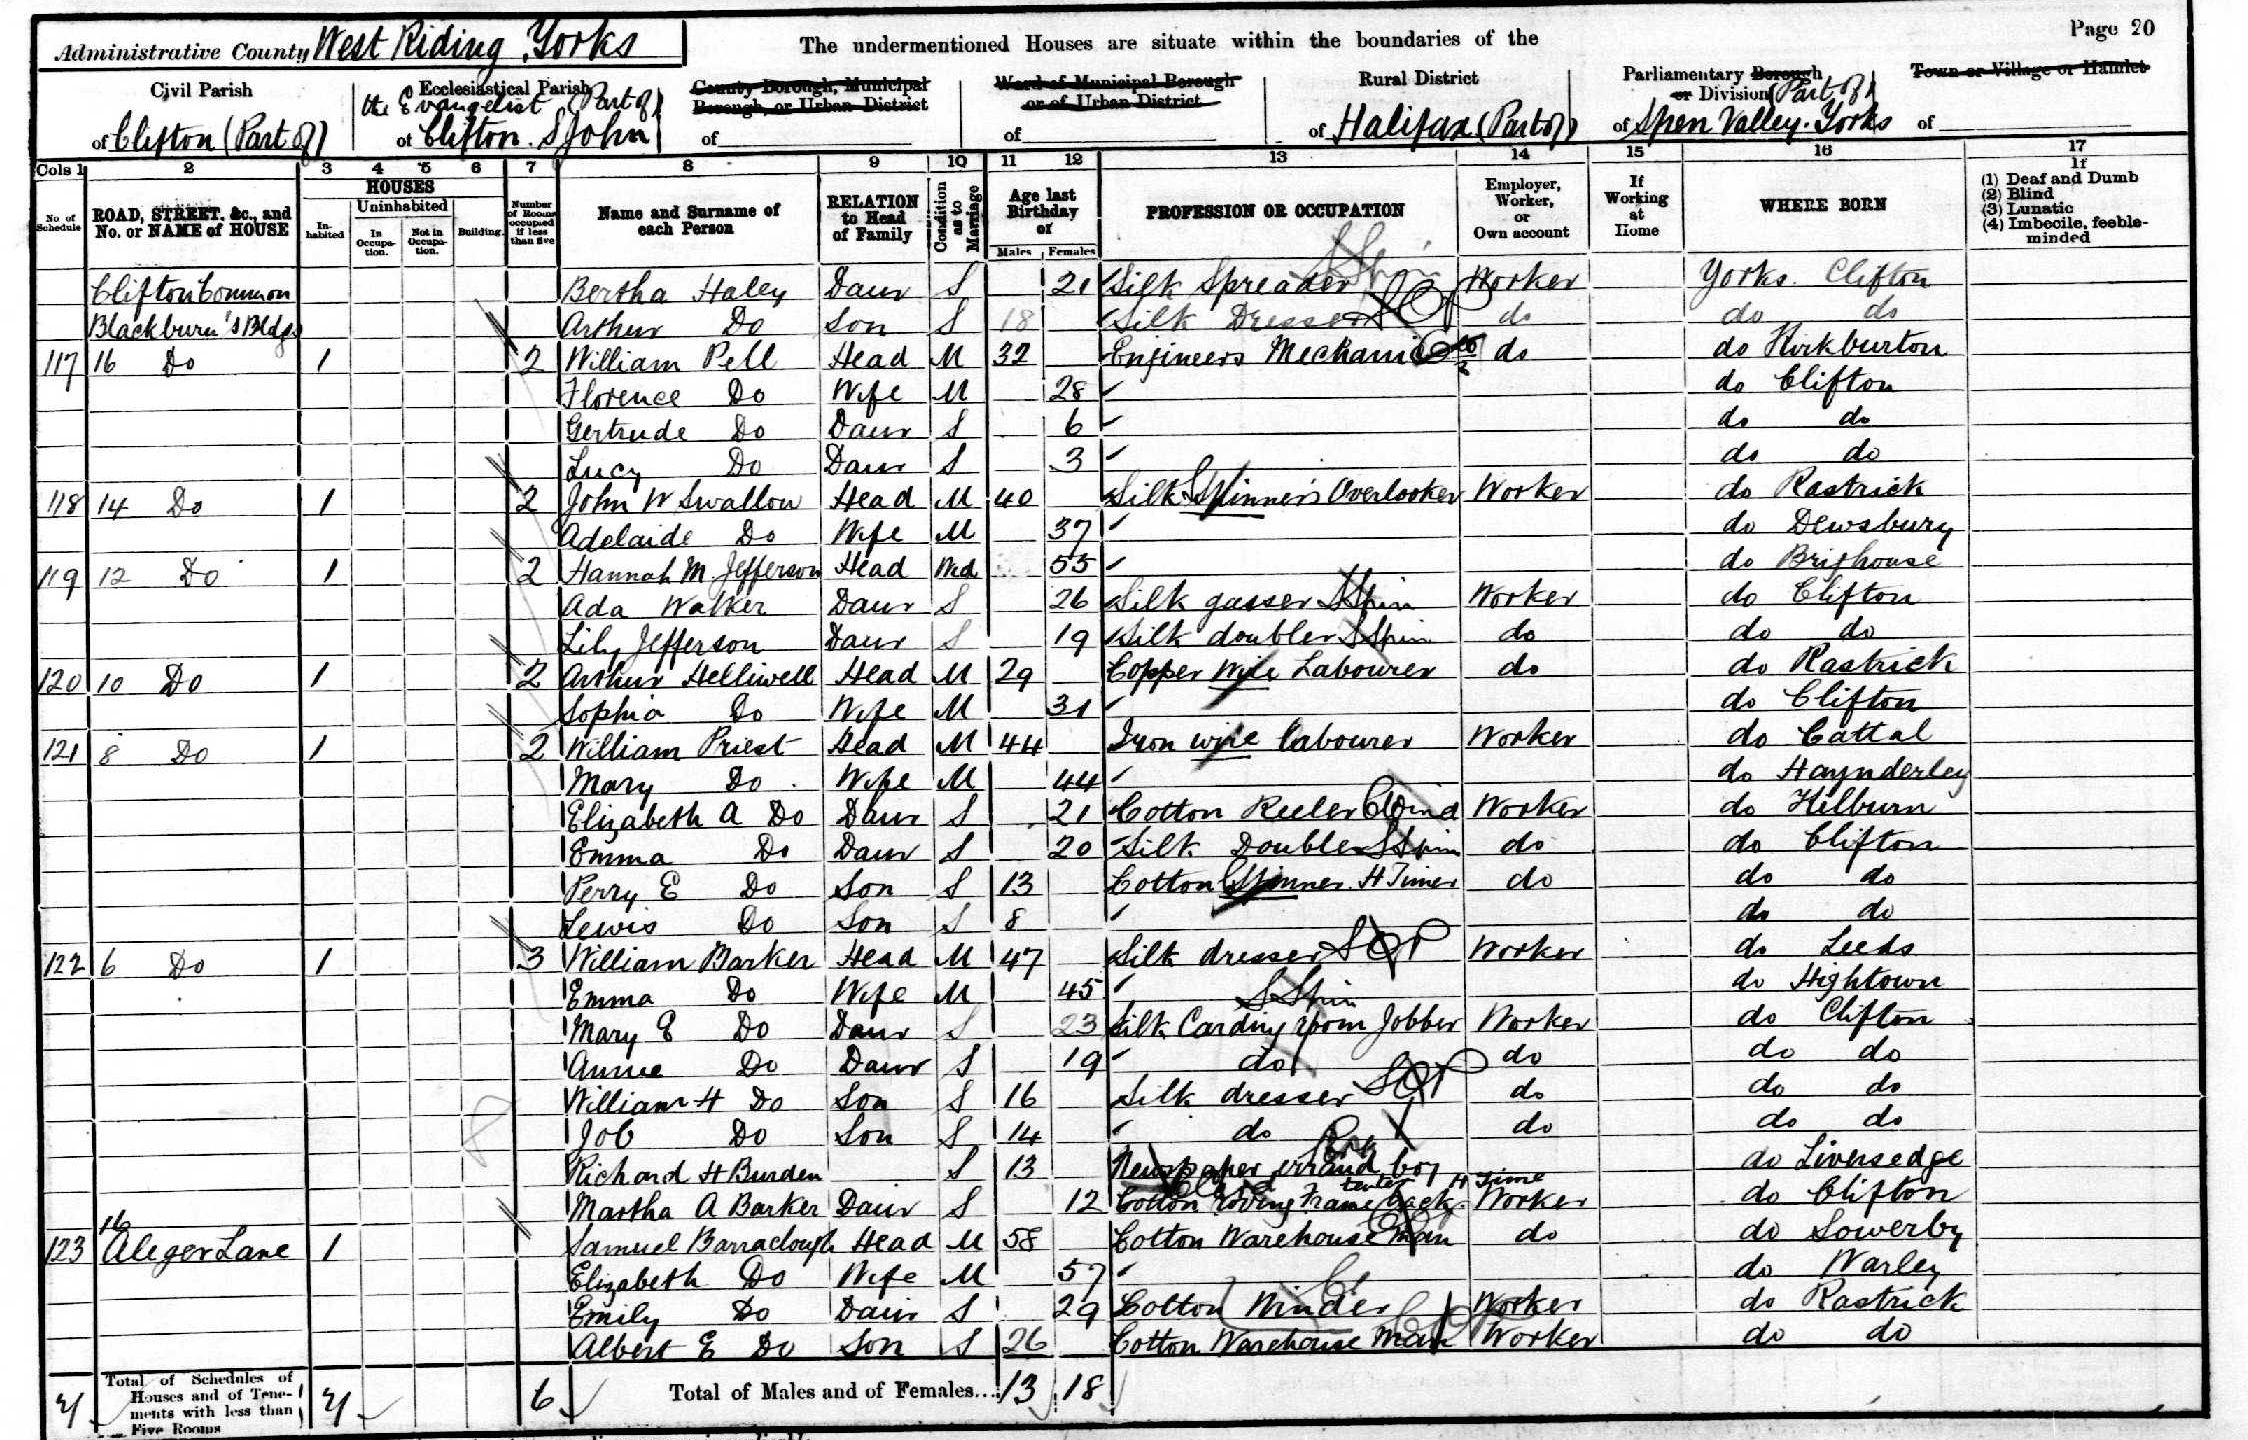 Page 20
Administrative County West Riding Yorks
The undermentioned Houses are situate within the boundaries of the
Civil Parish of Clifton (Part of)
Ecclesiastical Parish (Part of) the Evangelist of Clifton. S John
County Borough, Municipal Borough, or Urban District of
Ward of Municipal Borough or of Urban District of
Rural District of Halifax (Part of)
Parliamentary Borough or Division (Part of) of Spen Valley. Yorks
Town or Village or Hamlet of
Cols 1 2 3 4 5 6 7 8 9 10 11 12 13 14 15 16 17
No of Schedule
ROAD, STREET, &c., and No. or NAME of HOUSE
HOUSES
Inhabited
Uninhabited
In Occupation.
Not in Occupation.
Building.
Number of Rooms occupied if less than five
Name and Surname of each Person
RELATION to Head of Family
Condition as to Marriage
Age last Birthday of
Males Females
PROFESSION OR OCCUPATION
Employer, Worker, or Own account
If Working at Home
WHERE BORN
If
(1) Deaf and Dumb
(2) Blind
(3) Lunatic
(4) Imbecile, feeble-minded
Clifton Common Bertha Haley Daur S 21 Silk Spreader S Spin Worker Yorks. Clifton
Blackburn's Bldgs Arthur Do Son S 18 Silk Dresser do do do
117 16 Do 1 2 William Pell Head M 32 Engineers Mechanic do do Kirkburton
Florence Do Wife M 28 do Clifton
Gertrude Do Daur S 6 do do
Lucy Do Daur S 3 do do
118 14 Do 1 2 John W Swallow Head M 40 Silk Spinner's Overlooker Worker do Rastrick
Adelaide Do Wife M 37 do Dewsbury
119 12 Do 1 2 Hannah M Jefferson Head Wid 55 do Brighouse
Ada Walker Daur S 26 Silk gasser S Spin Worker do Clifton
Lily Jefferson Daur S 19 Silk doubler S Spin do do do
120 10 Do 1 2 Arthur Helliwell Head M 29 Copper Wire Labourer do do Rastrick
Sophia Do Wife M 31 do Clifton
121 8 Do 1 2 William Priest Head M 44 Iron wire labourer Worker do Cattal
Mary Do Wife M 44 do Haynderley
Elizabeth A Do Daur S 21 Cotton Reeler C Wind Worker do Hilburn
Emma Do Daur S 20 Silk Doubler S Spin do do Clifton
Perry E Do Son S 13 Cotton Spinner H Timer do do do
Lewis Do Son S 8 do do
122 6 Do 1 3 William Barker Head M 47 Silk dresser Worker do Leeds
Emma Do Wife M 45 do Hightown
Mary E Do Daur S 23 Silk Carding room Jobber S Spin Worker do Clifton
Annie Do Daur S 19 do do do do
William H Do Son S 16 Silk dresser do do do
Job Do Son S 14 do do do do
Richard H Burden S 13 Newspaper errand boy do Liversedge
Martha A Barker Daur S 12 Cotton roving Frame back tenter H Time Worker do Clifton
123 16 Aleger Lane 1 Samuel Barraclough Head M 58 Cotton Warehouse Man do do Sowerby
Elizabeth Do Wife M 57 do Warley
Emily Do Daur S 29 Cotton Winder Worker do Rastrick
Albert E Do Son S 26 Cotton Warehouse Man Worker do do
7 Total of Schedules of Houses and of Tenements with less than Five Rooms 7 6 Total of Males and of Females... 13 18